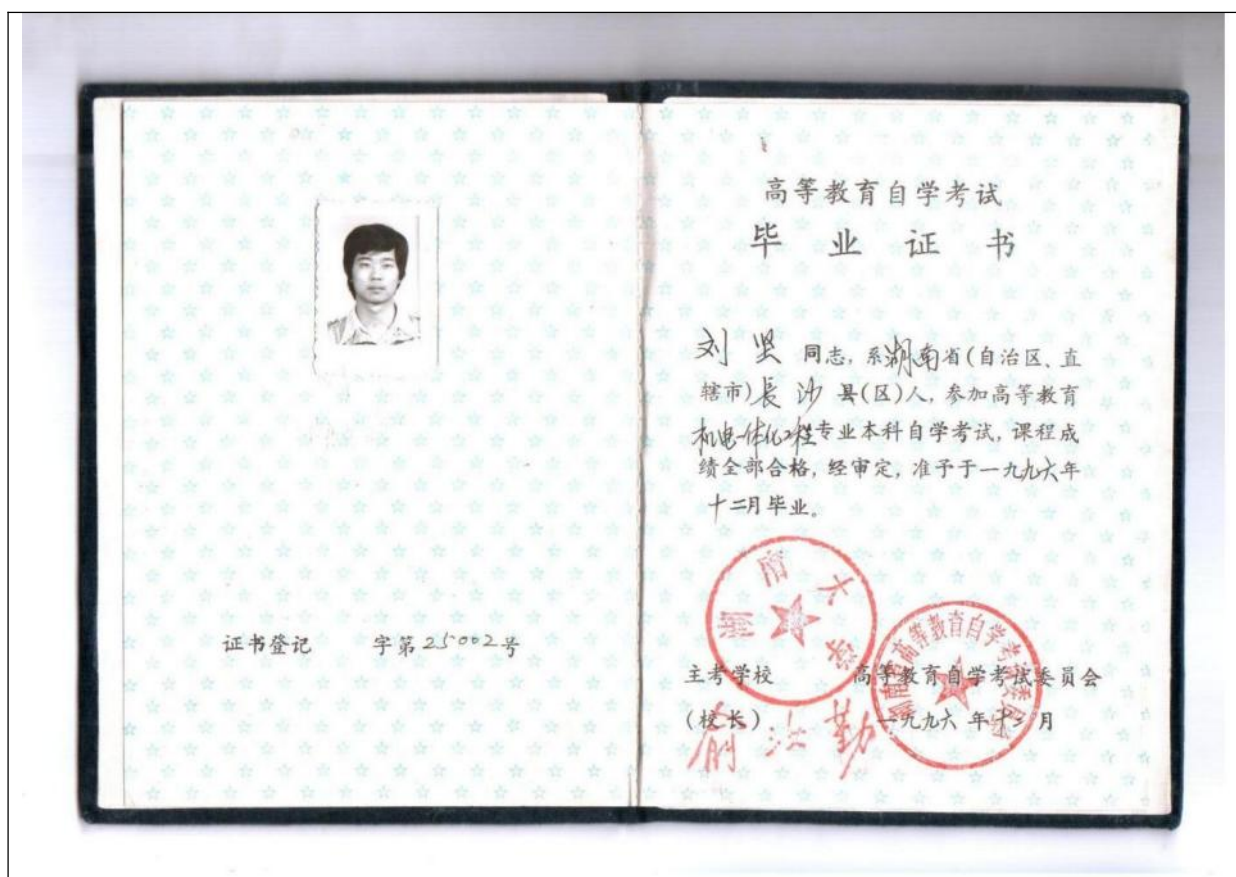 证书登记 字第25002号
高等教育自学考试
毕业证书
刘坚 同志,系湖南省(自治区、直
辖市)长沙县(区)人,参加高等教育
机电一体化工程专业本科自学考试,课程成
绩全部合格,经审定,准予于一九九六年
十二月毕业。
湖南大学
湖南省高等教育自学考试委员会
主考学校 高等教育自学考试委员会
(校长) 一九九六年十二月